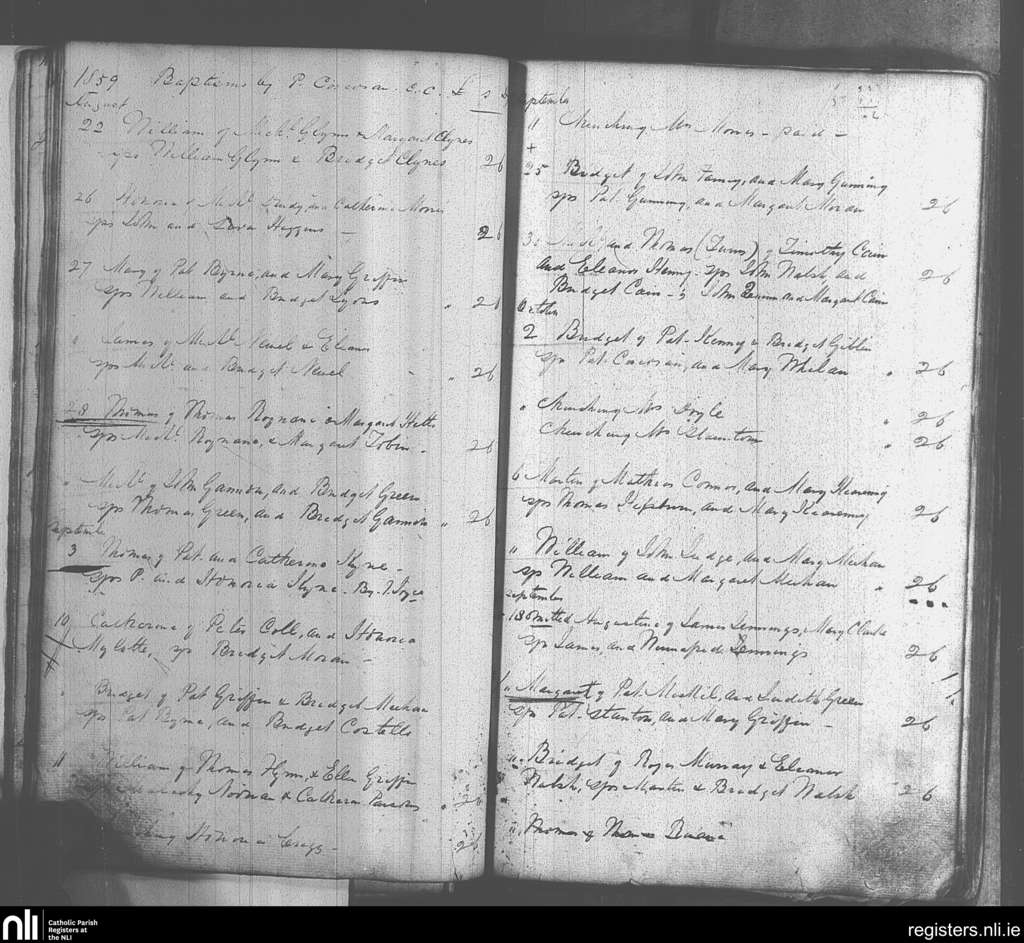 1859 Baptisms by P. Corcoran C.C. £ s
August
22 William of Michl. Glynn & Margaret Clynes
sps William Glynn & Bridget Clynes 26
26 Honoria of Michl. and Catherine Morris
sps John and Higgins 26
27 Mary of Pat Byrne, and Mary Griffin
sps William and Bridget Lyons " 26
" James of Michl. Nevel & Eleanor
sps Michl. and Bridget Nevel " 26
28 Thomas of Thomas Roynane & Margaret
sps Michl. Roynane, & Margaret Tobin 26
" Michl. of John Gannon, and Bridget Green
sps Thomas Green, and Bridget Gannon " 26
September
3 Thomas of Pat. and Catherine Kyne
sps P. and Honoria Kyne. By. J. Joyce
10 Catherine of Peter Coll, and Honoria
Mylotte, sps Bridget Moran
" Bridget of Pat Griffin & Bridget Meehan
sps Pat Byrne, and Bridget Costello
11 William of Thomas Flynn, & Ellen Griffin
Noonan & Catherine " 26
Honoria 26
September
11 Churching Mrs Morris - paid -
25 Bridget of John Faney, and Mary Gunning
sps Pat. Gunning, and Margaret Moran 26
30 Michl. and Thomas (Twins) of Timothy Cain
and Eleanor Henry. sps John Walsh and
Bridget Cain - & John and Margaret Cain 26
October
2 Bridget of Pat. Kenny & Bridget Giblin
sps Pat. Corcoran, and Mary Whelan " 26
" Churching Mrs Joyle " 26
Churching Mrs Staunton " 26
6 Martin of Mathias Connor, and Mary Kearney
sps Thomas Hepburn, and Mary Kearney 26
" William of John Judge, and Mary Meehan
sps William and Margaret Meehan " 26
September
18 omitted Augustine of James Jennings, Mary Clarke
sps James, and Winnifred Jennings 26
" Margaret of Pat. Meskil, and Judith Green
sps Pat. Stanton, and Mary Griffin 26
" Bridget of Roger Murray & Eleanor
Walsh, sps Martin & Bridget Walsh 26
" Thomas of Thomas
nli
Catholic Parish
Registers at
the NLI
registers.nli.ie